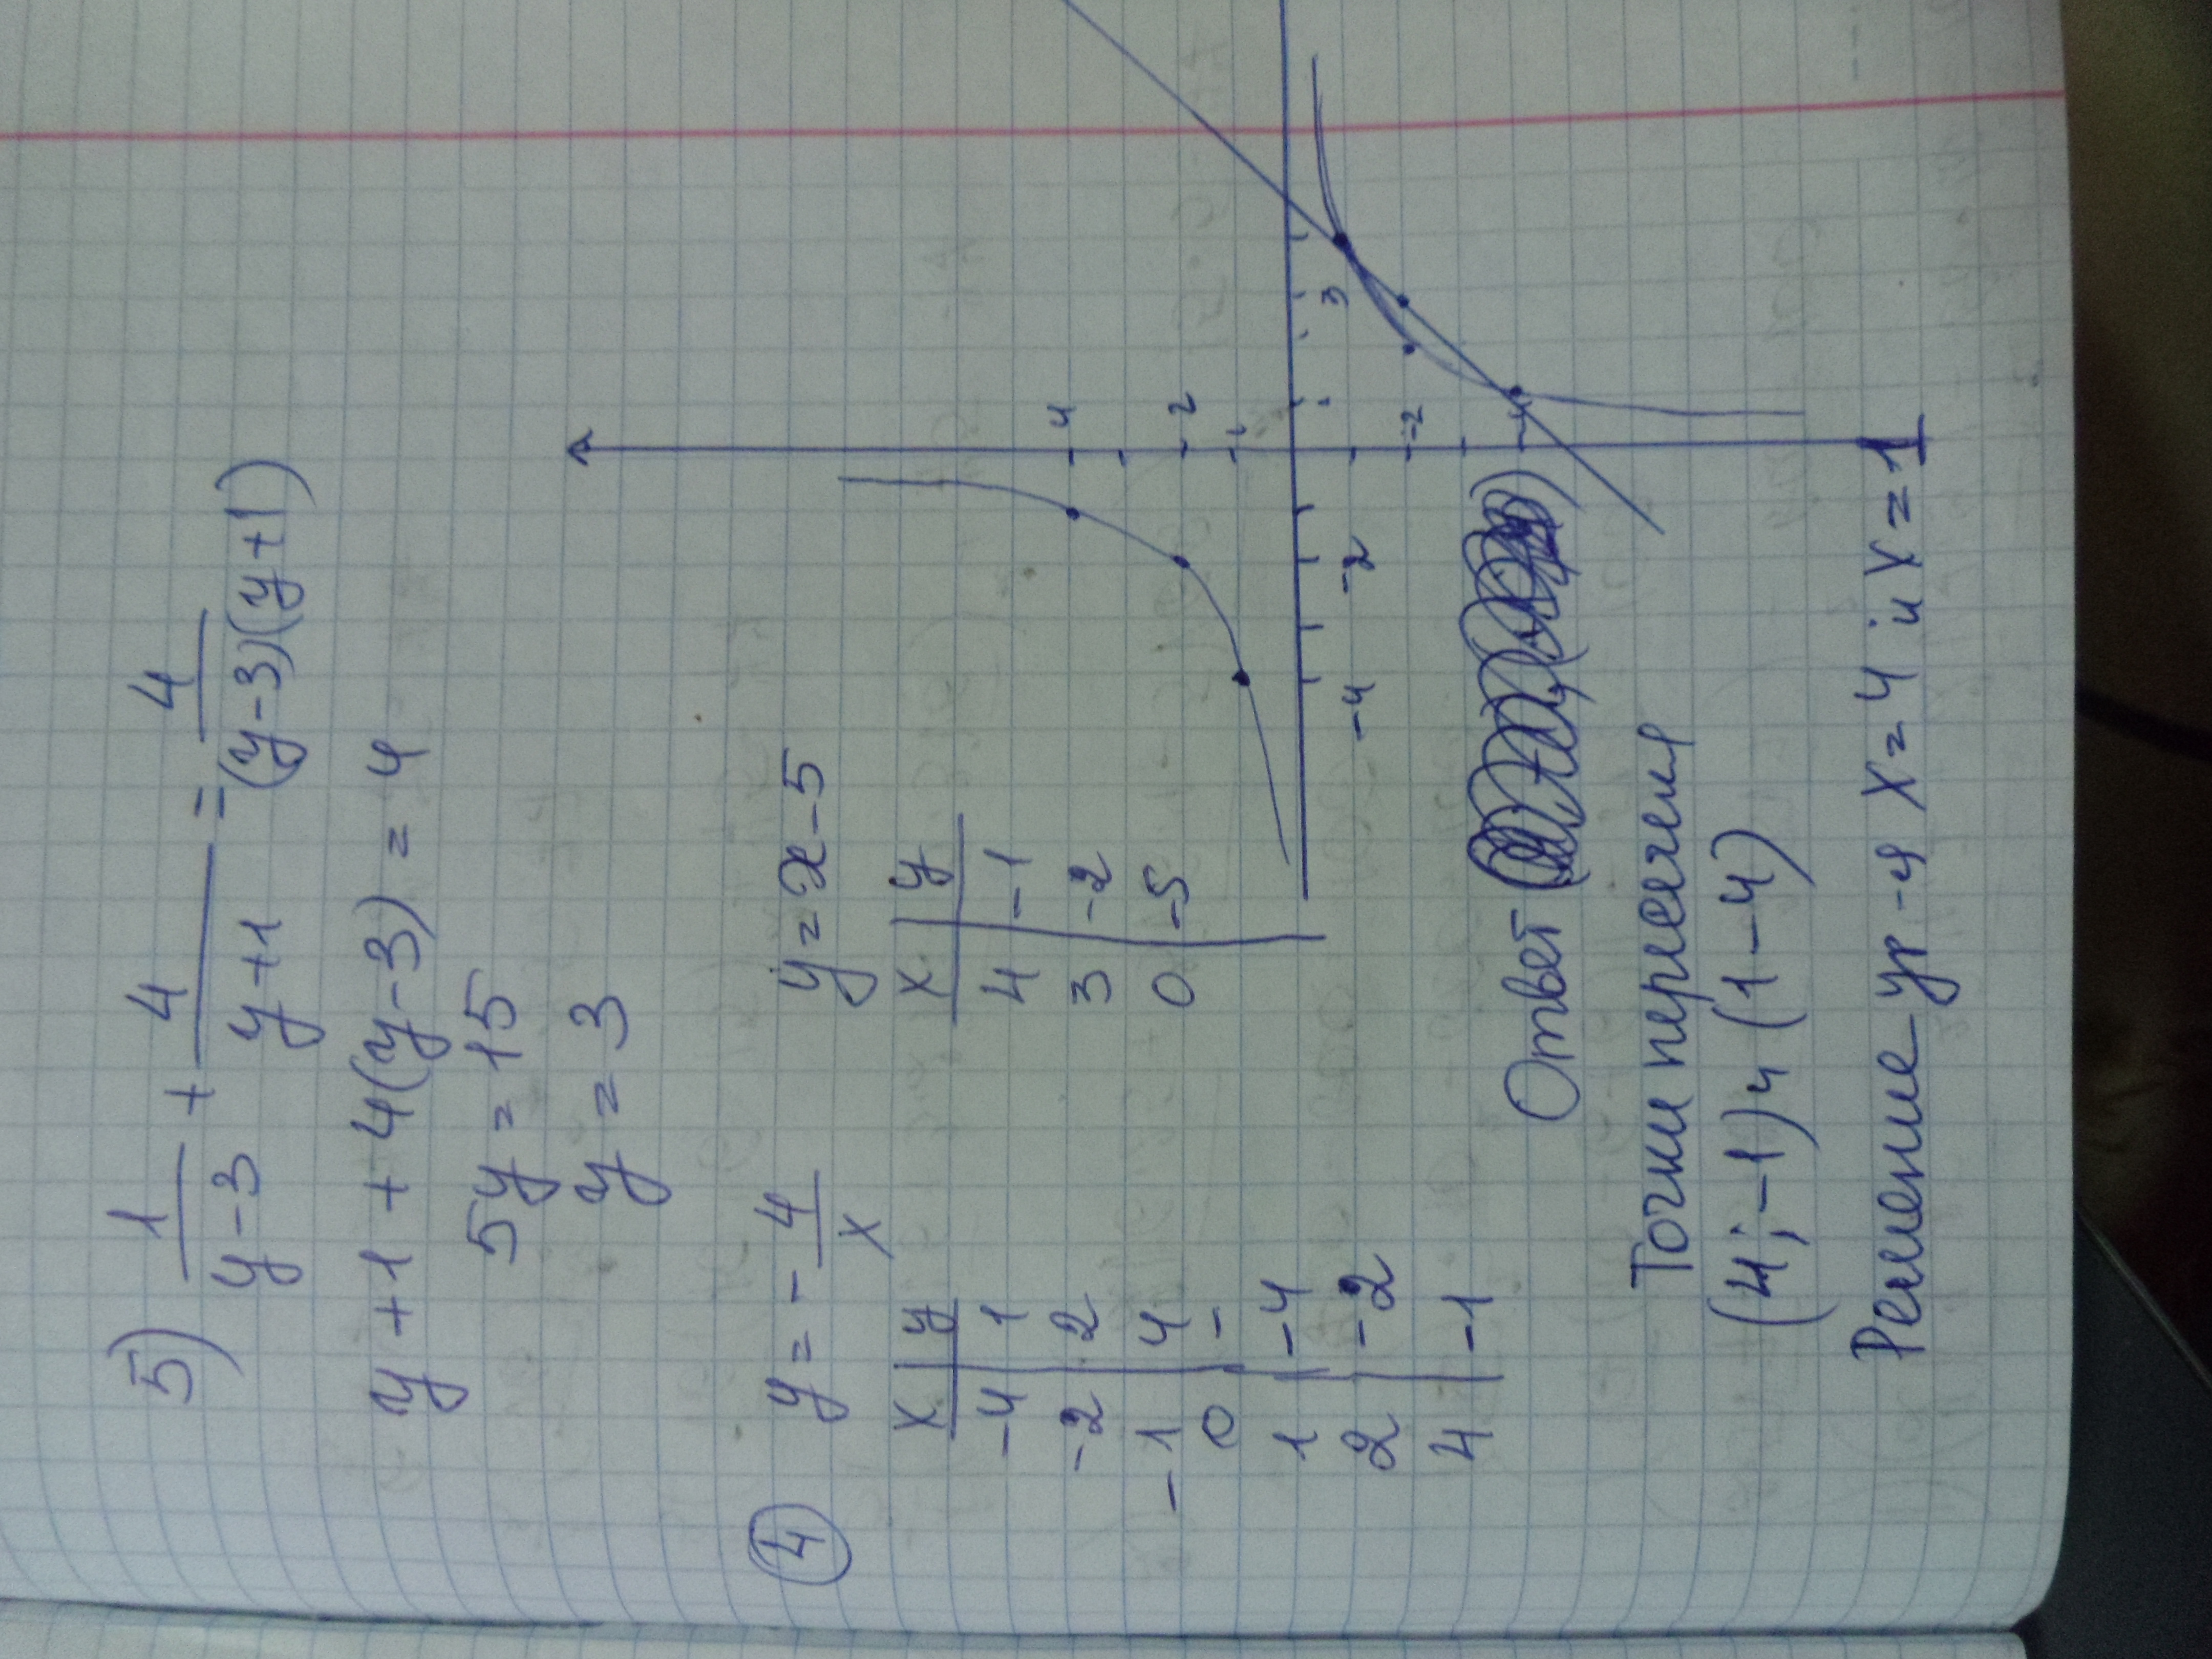 5) 1/(y-3) + 4/(y+1) = 4/((y-3)(y+1))
y+1+4(y-3)=4
5y=15
y=3
4 y=-4/x y=x-5
x | y x | y
-4 | 1 4 | -1
-2 | 2 3 | -2
-1 | 4 0 | -5
0 | -
1 | -4
2 | -2
4 | -1
4
2
1
-4 -2 1 3
-2
-4
Ответ
Точки пересечения
(4; -1) и (1 -4)
Решение ур-я x=4 и x=1